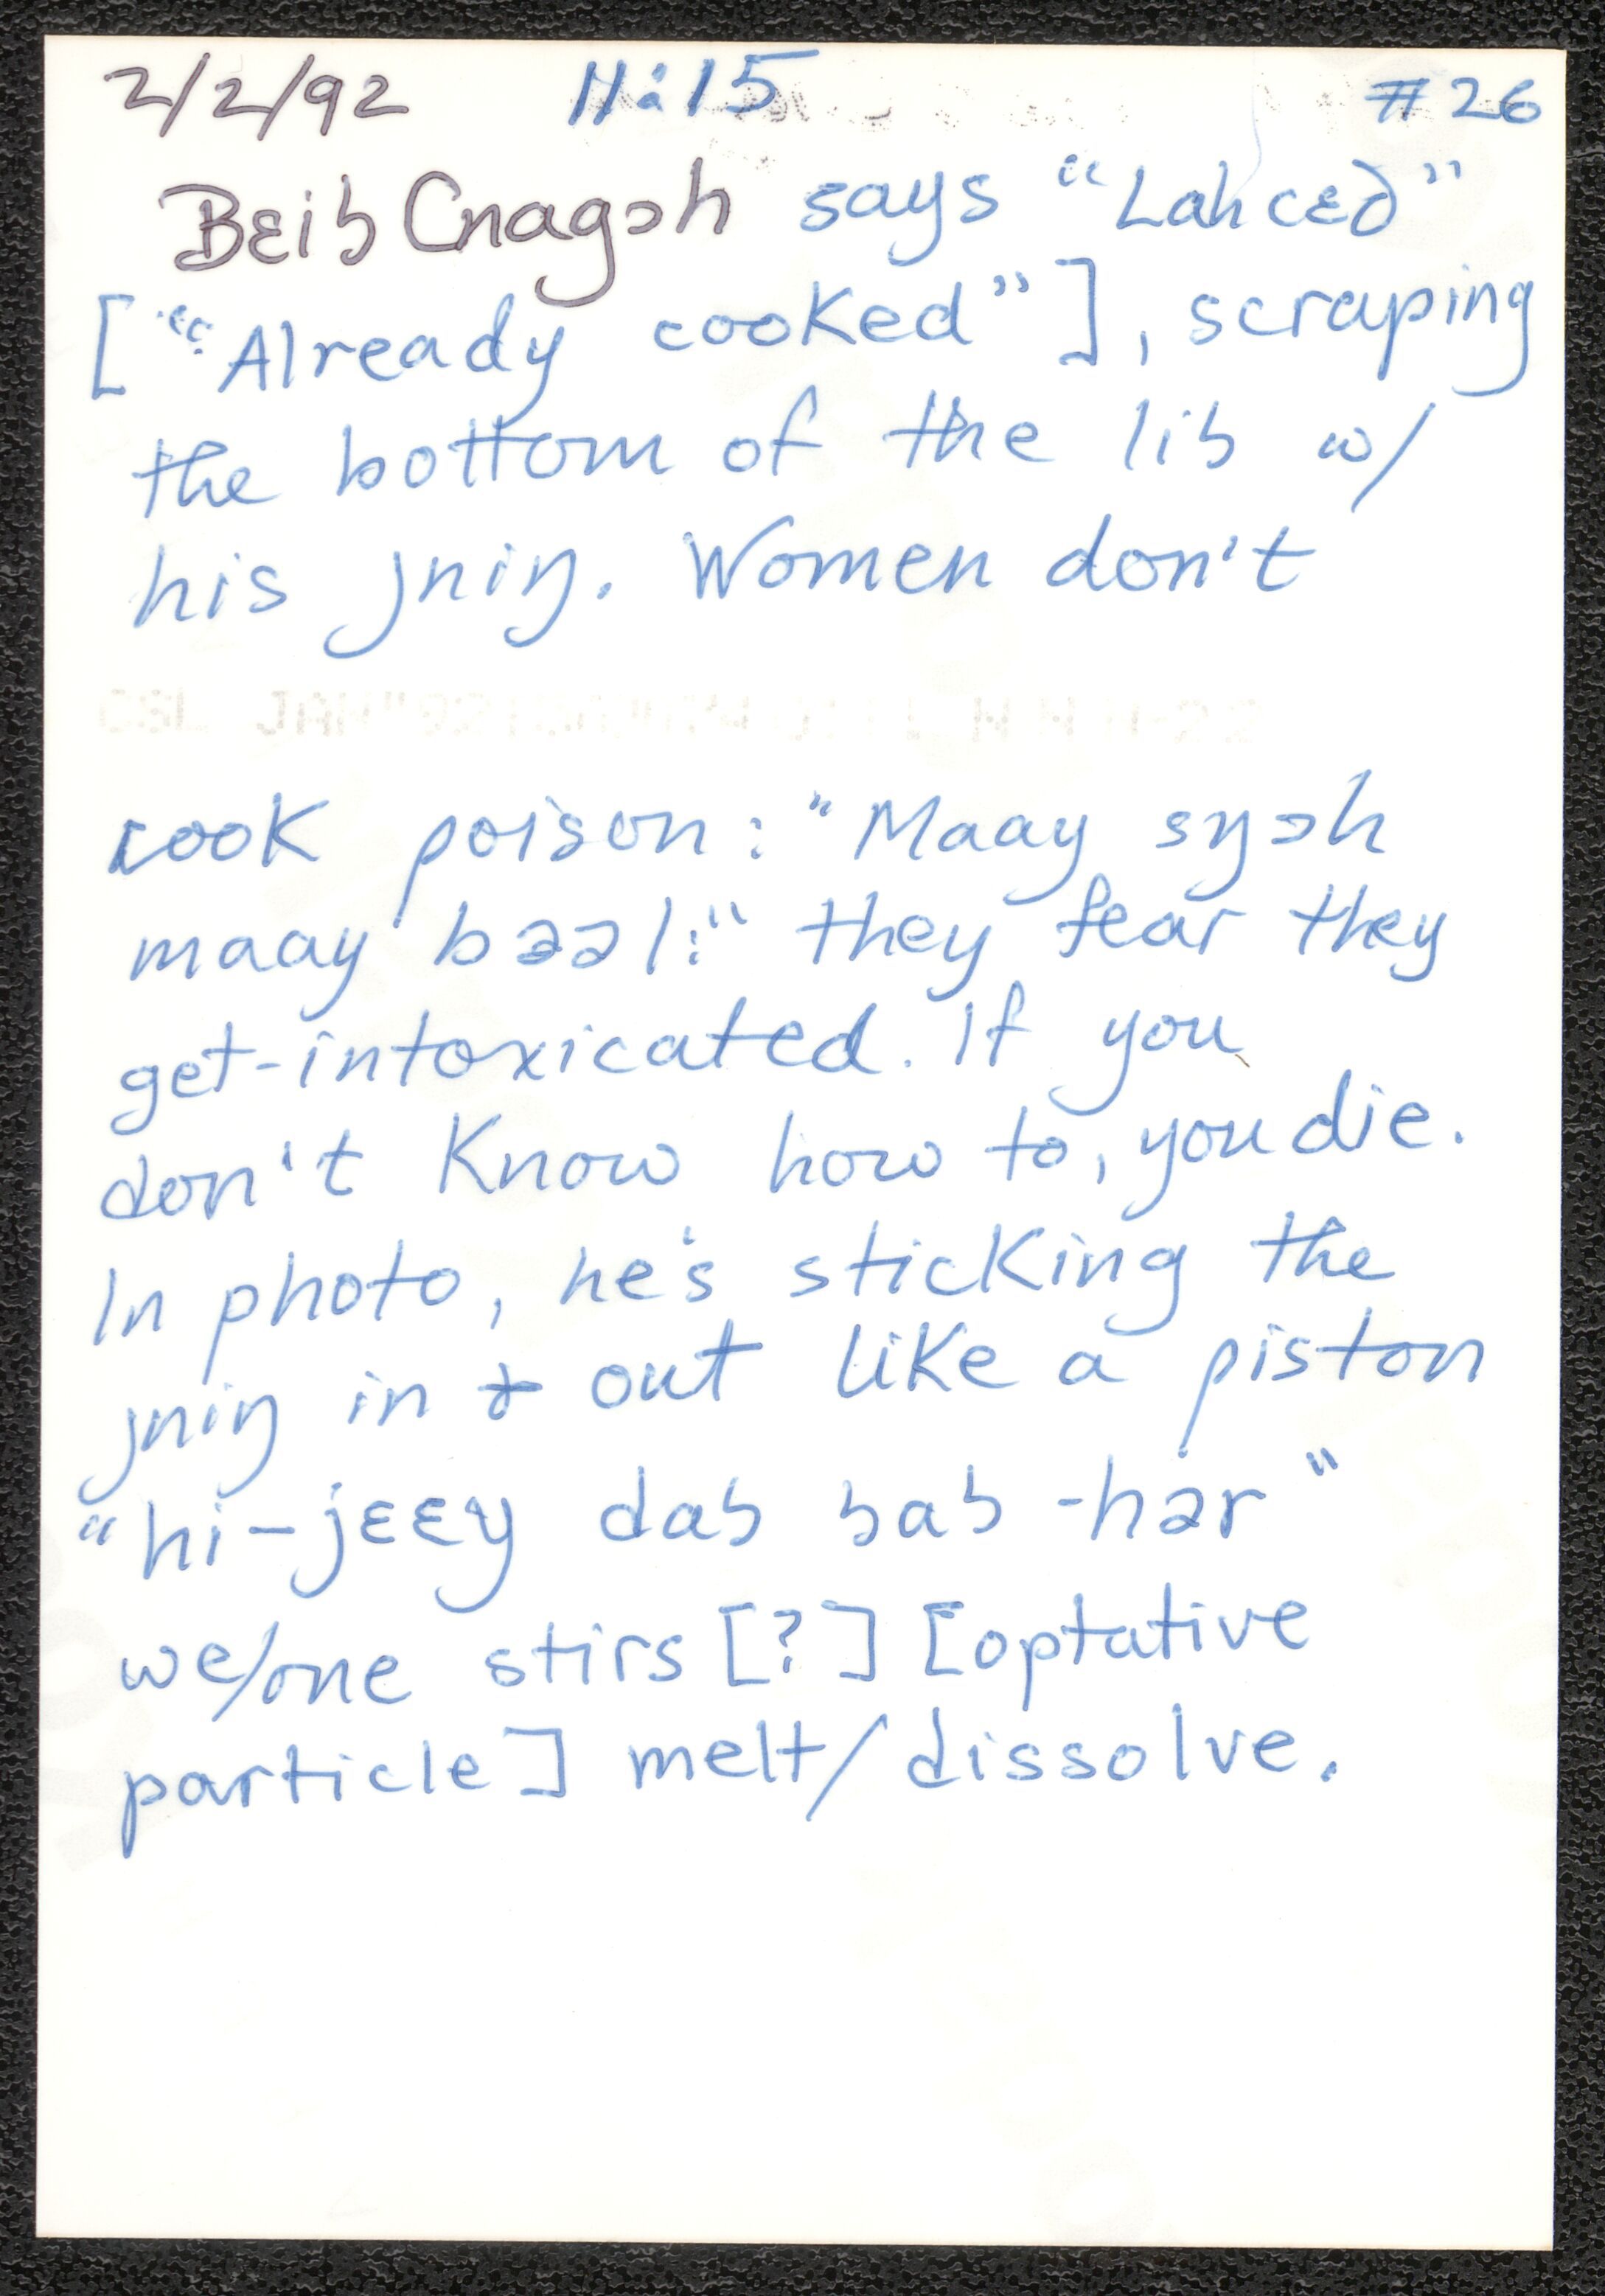 2/2/92 11:15 #26
Bɛiɓ Cnagɔh says "Lah cɛ∂"
["Already cooked"], scraping
the bottom of the liɓ w/
his jniŋ. Women don't
cook poison: "Maay sŋɔh
maay bəəl:" they fear they
get-intoxicated. If you
don't know how to, you die.
In photo, he's sticking the
jniŋ in & out like a piston
"hi-jɛɛy daɓ ɓaɓ-hər"
we/one stirs [?] [optative
particle] melt/dissolve.